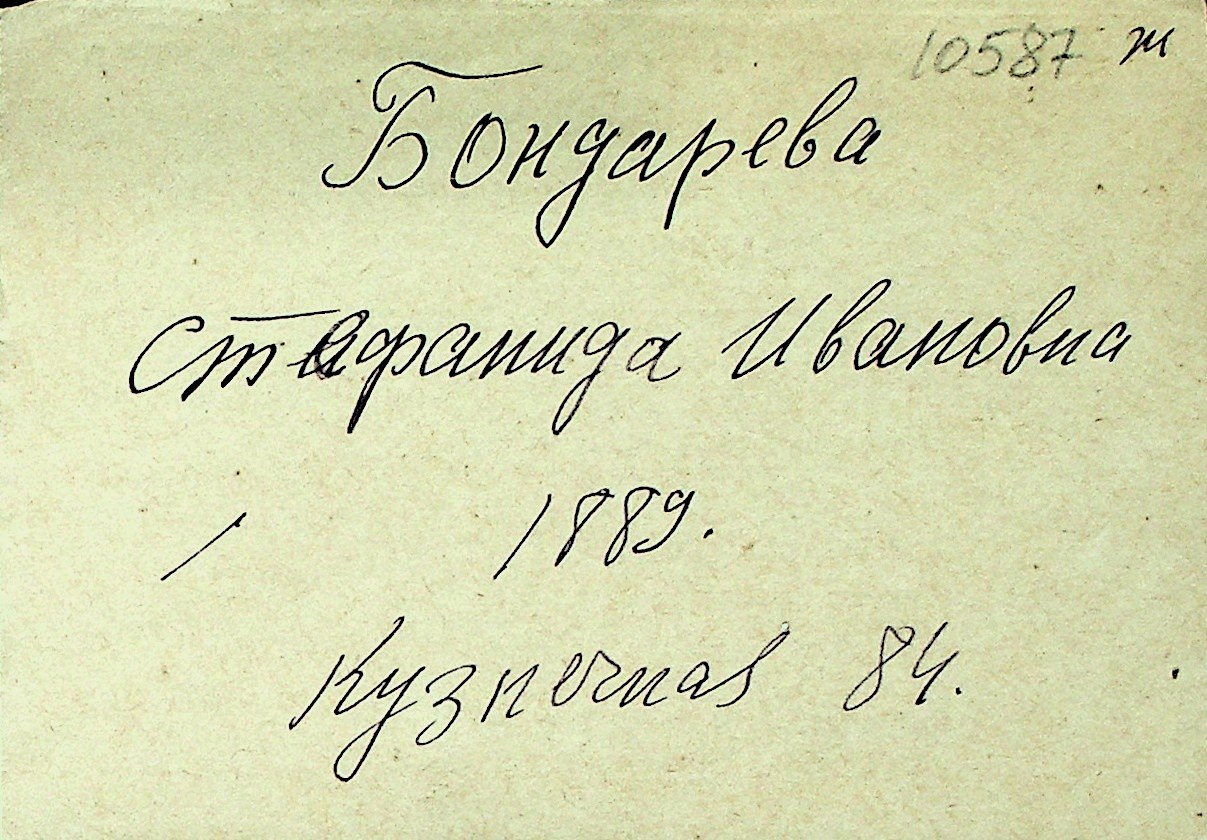 10587 ж
Бондарева
Стефанида Ивановна
1889.
Кузнечная 84.